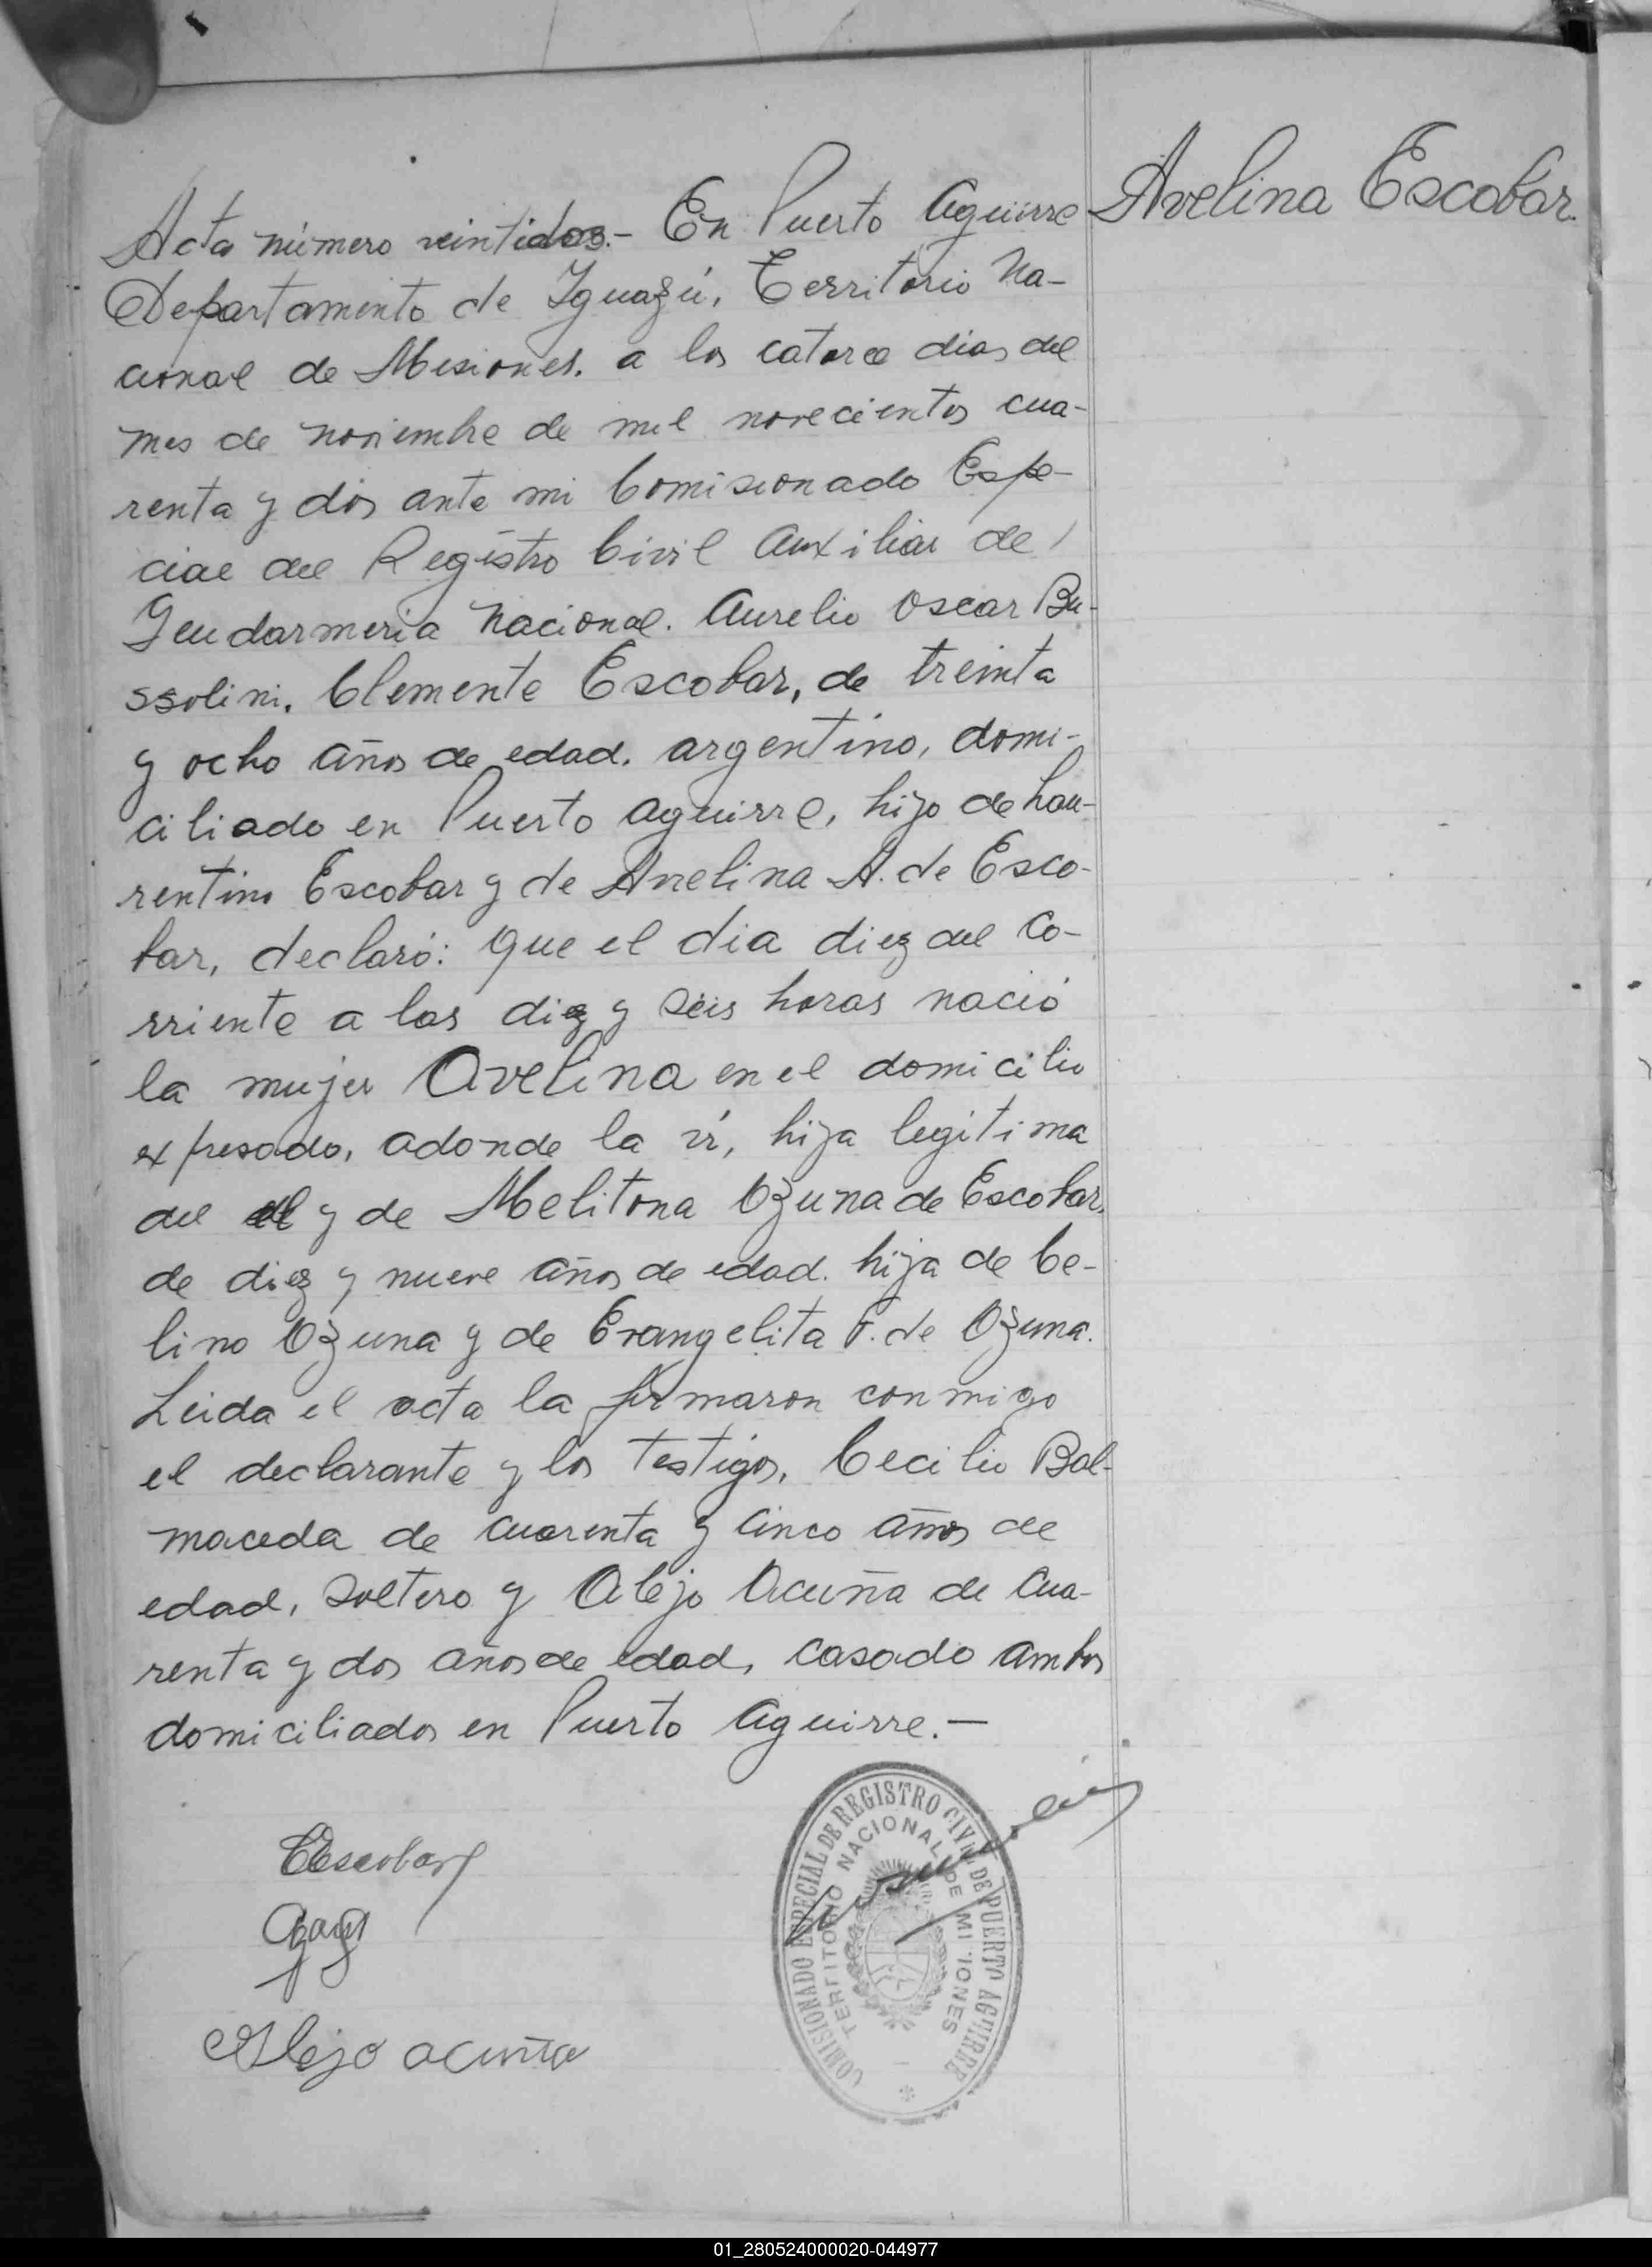 Avelina Escobar.
Acta número veintidos.- En Puerto Aguirre
Departamento de Iguazú, Territorio Na-
cional de Misiones. a los catorce dias del
mes de noviembre de mil novecientos cua-
renta y dós ante mi Comisionado Espe-
cial del Registro Civil Auxiliar de
Gendarmeria Nacional. Aurelio Oscar Bu-
ssolini. Clemente Escobar, de treinta
y ocho años de edad. argentino, domi-
ciliado en Puerto Aguirre, hijo de Lau-
rentino Escobar y de Avelina A. de Esco-
bar, declaró: Que el dia diez del co-
rriente a las diez y seis horas nació
la mujer Avelina en el domicilio
expresado, adonde la ví, hija legítima
del el y de Melitona Ozuna de Escobar.
de diez y nueve años de edad. hija de Ce-
lino Ozuna y de Evangelita F. de Ozuna.
Leida el acta la firmaron conmigo
el declarante y los testigos, Cecilio Bal-
maceda de cuarenta y cinco años de
edad, soltero y Alejo Acuña de cua-
renta y dos años de edad, casado ambos
domiciliados en Puerto Aguirre.-
CEscobar
Alejo acuña
COMISIONADO ESPECIAL DE REGISTRO CIVIL DE PUERTO AGUIRRE
TERRITORIO NACIONAL DE MISIONES
01_280524000020-044977